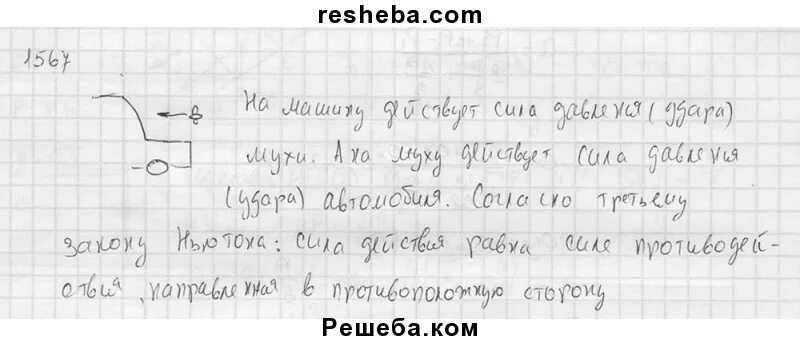 resheba.com
1567
На машину действует сила давления (удара)
мухи. А на муху действует сила давления
(удара) автомобиля. Согласно третьему
закону Ньютона: сила действия равна силе противодей-
ствия, направленная в противоположную сторону
Решеба.ком